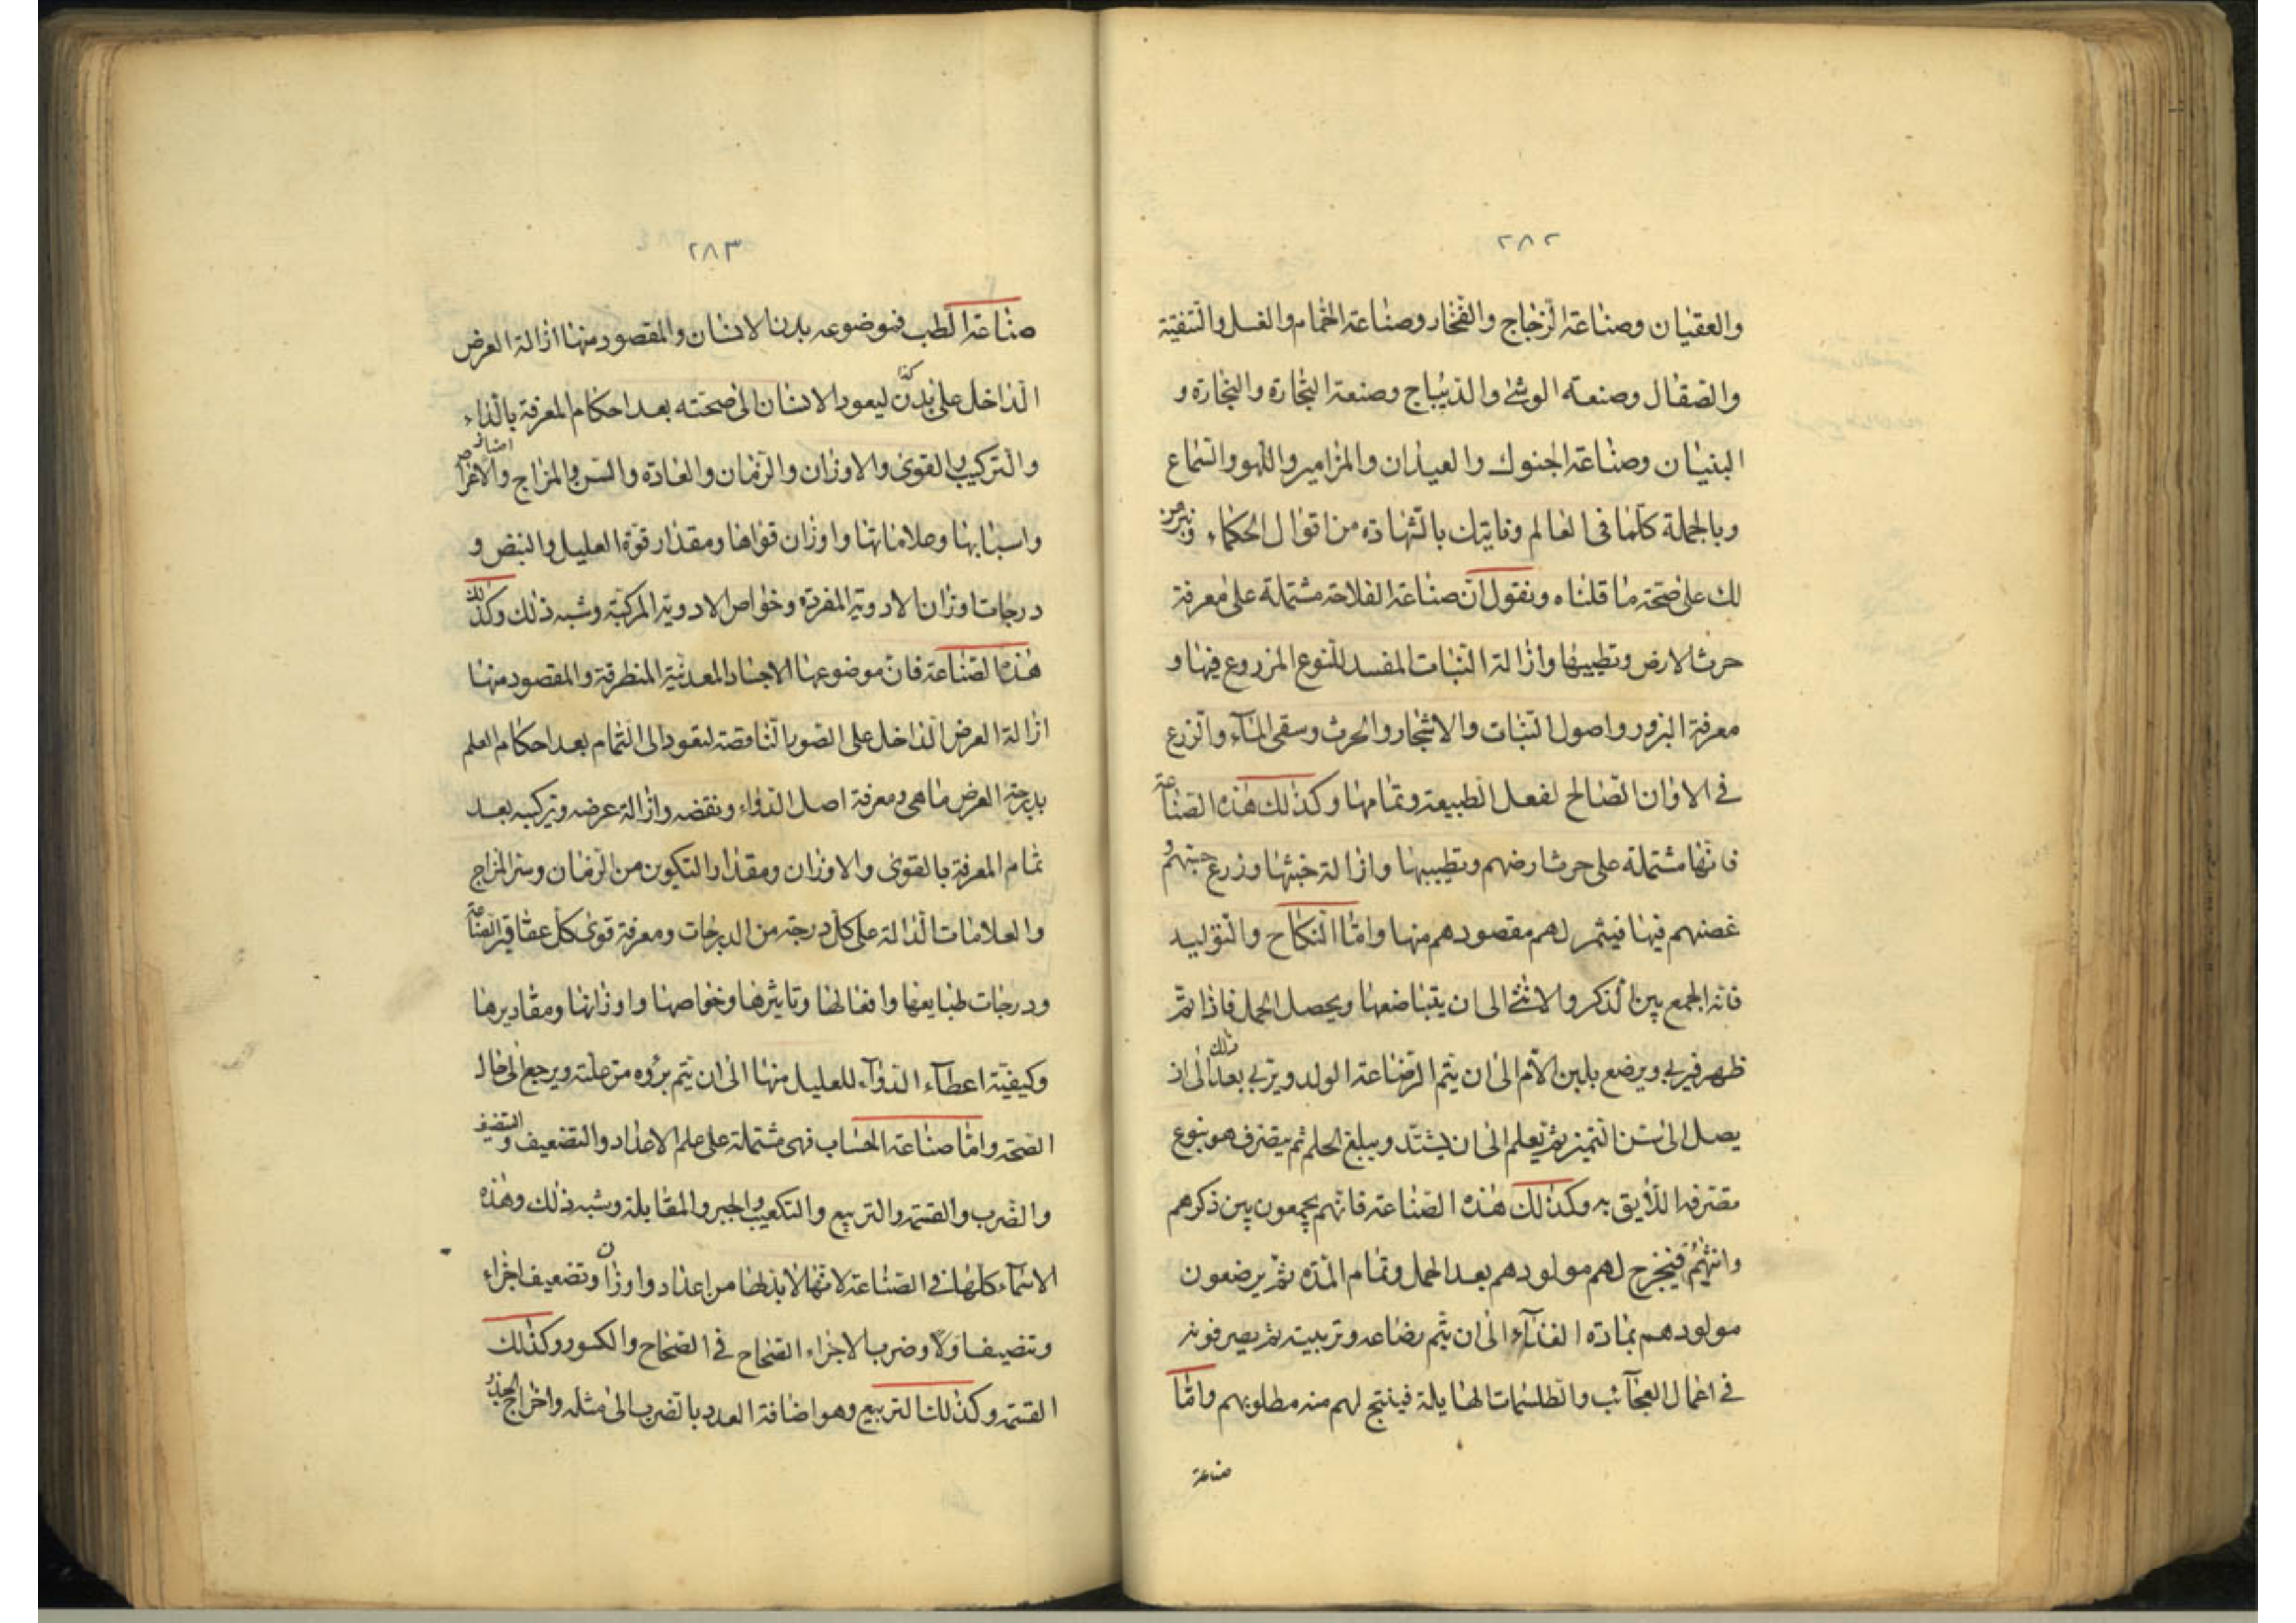 ٢٨٢
والعقيان وصناعة الزجاج والفخار وصناعة الحمام والغسل والتنقية
والصقال وصنعه الوشى والديباج وصنعة التجارة والنجارة و
البنيان وصناعة الجنوك والعيدان والمزامير واللهو والسماع
وبالجملة كلما فى العالم وناتيك بالشهادة من اقوال الحكماء
لك على صحة ما قلناه ونقول ان صناعة الفلاحة مشتملة على معرفة
حرث الارض وتطييبها وازالة النبات المفسد للنوع المزروع فيها و
معرفة البزور واصول النبات والاشجار والحرث وسقى المآء والزرع
فى الاوان الصالح لفعل الطبيعة وتمامها وكذلك هذه الصناعة
فانها مشتملة على حرث ارضهم وتطييبها وازالة خبثها وزرع حبهم و
غصنهم فيها فيثمر لهم مقصودهم منها واما النكاح والتوليد
فانه الجمع بين الذكر والانثى الى ان يتباضعها ويحصل الحمل فاذا تم
ظهر فيربى ويرضع بلبن الام الى ان يتم الرضاعة الولد ويربى بعد ذلك الى ان
يصل الى سن التميز ثم يعلم الى ان يشتد ويبلغ الحلم ثم يتصرف هو بنوع
تصرفه اللايق به وكذلك هذه الصناعة فانهم يجمعون بين ذكرهم
وانثهم فيخرج لهم مولودهم بعد الحمل وتمام المدة ثم يرضعون
مولودهم بمادة الغذآء الى ان يتم رضاعه وتربيته ثم يصرفونه
فى اعمال العجآئب والطلسمات الهايلة فينتج لهم منه مطلوبهم واما
صناعة
٢٨٣
صناعة الطب فموضوعه بدن الانسان والمقصود منها ازالة العرض
الداخل على بدن كذا ليعود الانسان الى صحته بعد احكام المعرفة بالداء
والتركيب والقوى والاوزان والزمان والعادة والسن والمزاج والامراض
واسبابها وعلاماتها واوزان قواها ومقدار قوة العليل والنبض و
درجات اوزان الادوية المفردة وخواص الادوية المركبة وشبه ذلك وكذلك
هذه الصناعة فان موضوعها الاجساد المعدنية المنطرقة والمقصود منها
ازالة العرض الداخل على الصور الناقصة لتعود الى التمام بعد احكام العلم
بدرجة العرض ما هى ومعرفة اصل الدواء ونقضه وازالة عرضه وتركيبه بعد
تمام المعرفة بالقوى والاوزان ومقدار التكوين من الزمان وسر المزاج
والعلامات الدالة على كل درجة من الدرجات ومعرفة قوى كل عقاقير الصناعة
ودرجات طبايعها وافعالها وتاثيرها وخواصها واوزانها ومقاديرها
وكيفية اعطآء الدوآء للعليل منها الى ان يتم برؤه من علته ويرجع الى حال
الصحة واما صناعة الحساب فهى مشتملة على علم الاعداد والتضعيف والتنصيف
والضرب والقسمة والتربيع والتكعيب والجبر والمقابلة وشبه ذلك وهذه
الاسمآء كلها فى الصناعة لانها لابد لها من اعداد واوزان وتضعيف اجزاء
وتنصيف اولا وضرب الاجزاء الصحاح فى الصحاح والكسور وكذلك
القسمة وكذلك التربيع وهو اضافة العدد بالضرب الى مثله واخراج الجذر